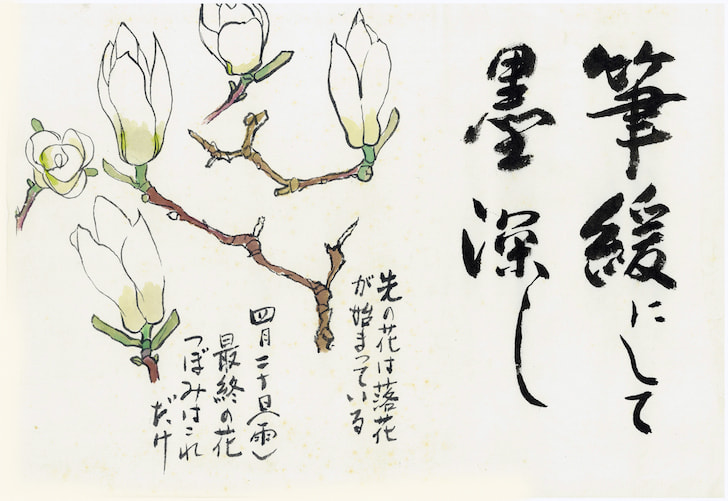 筆緩にして
墨深し
先の花は落花
が始まっている
四月二十日(雨)
最終の花
つぼみはこれ
だけ